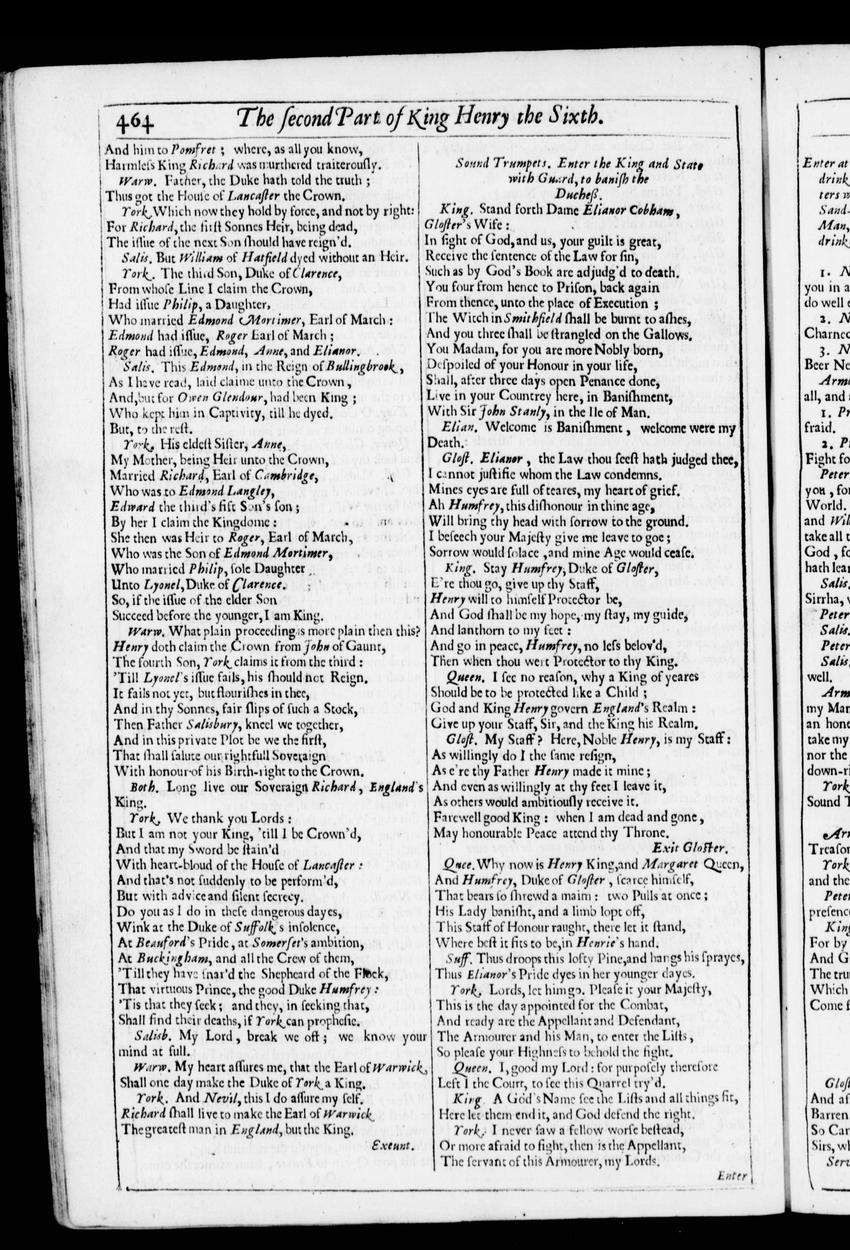 464 The ſecond Part of King Henry the Sixth.
And him to Pomfret ; where, as all you know,
Harmleſs King Richard was murthered traiterouſly.
Warw. Father, the Duke hath told the truth ;
Thus got the Houſe of Lancaſter the Crown.
York. Which now they hold by force, and not by right:
For Richard, the firſt Sonnes Heir, being dead,
The iſſue of the next Son ſhould have reign'd.
Salis. But William of Hatfield dyed without an Heir.
York. The third Son, Duke of Clarence,
From whoſe Line I claim the Crown,
Had iſſue Philip, a Daughter,
Who married Edmond Mortimer, Earl of March :
Edmond had iſſue, Roger Earl of March ;
Roger had iſſue, Edmond, Anne, and Elianor.
Salis. This Edmond, in the Reign of Bullingbrook,
As I have read, laid claime unto the Crown,
And, but for Owen Glendour, had been King ;
Who kept him in Captivity, till he dyed.
But, to the reſt.
York. His eldeſt Siſter, Anne,
My Mother, being Heir unto the Crown,
Married Richard, Earl of Cambridge,
Who was to Edmond Langley,
Edward the third's fift Son's ſon ;
By her I claim the Kingdome :
She then was Heir to Roger, Earl of March,
Who was the Son of Edmond Mortimer,
Who married Philip, ſole Daughter
Unto Lyonel, Duke of Clarence.
So, if the iſſue of the elder Son
Succeed before the younger, I am King.
Warw. What plain proceeding is more plain then this?
Henry doth claim the Crown from John of Gaunt,
The fourth Son, York claims it from the third :
'Till Lyonel's iſſue fails, his ſhould not Reign.
It fails not yet, but flouriſhes in thee,
And in thy Sonnes, fair ſlips of ſuch a Stock,
Then Father Salisbury, kneel we together,
And in this private Plot be we the firſt,
That ſhall ſalute our rightfull Soveraign
With honour of his Birth-right to the Crown.
Both. Long live our Soveraign Richard, England's
King.
York. We thank you Lords :
But I am not your King, 'till I be Crown'd,
And that my Sword be ſtain'd
With heart-bloud of the Houſe of Lancaſter :
And that's not ſuddenly to be perform'd,
But with advice and ſilent ſecrecy.
Do you as I do in theſe dangerous dayes,
Wink at the Duke of Suffolk's inſolence,
At Beauford's Pride, at Somerſet's ambition,
At Buckingham, and all the Crew of them,
'Till they have ſnar'd the Shepheard of the Flock,
That virtuous Prince, the good Duke Humfrey :
'Tis that they ſeek ; and they, in ſeeking that,
Shall find their deaths, if York can propheſie.
Salisb. My Lord, break we oft ; we know your
mind at full.
Warw. My heart aſſures me, that the Earl of Warwick,
Shall one day make the Duke of York a King.
York. And Nevil, this I do aſſure my ſelf,
Richard ſhall live to make the Earl of Warwick
The greateſt man in England, but the King.
Exeunt.
Sound Trumpets. Enter the King and State
with Guard, to baniſh the
Ducheſs.
King. Stand forth Dame Elianor Cobham,
Gloſter's Wife :
In ſight of God, and us, your guilt is great,
Receive the ſentence of the Law for ſin,
Such as by God's Book are adjudg'd to death.
You four from hence to Priſon, back again
From thence, unto the place of Execution ;
The Witch in Smithfield ſhall be burnt to aſhes,
And you three ſhall be ſtrangled on the Gallows.
You Madam, for you are more Nobly born,
Deſpoiled of your Honour in your life,
Shall, after three days open Penance done,
Live in your Countrey here, in Baniſhment,
With Sir John Stanly, in the Ile of Man.
Elian. Welcome is Baniſhment, welcome were my
Death.
Gloſt. Elianor, the Law thou ſeeſt hath judged thee,
I cannot juſtifie whom the Law condemns.
Mines eyes are full of teares, my heart of grief.
Ah Humfrey, this diſhonour in thine age,
Will bring thy head with ſorrow to the ground.
I beſeech your Majeſty give me leave to goe ;
Sorrow would ſolace, and mine Age would ceaſe.
King. Stay Humfrey, Duke of Gloſter,
E're thou go, give up thy Staff,
Henry will to himſelf Protector be,
And God ſhall be my hope, my ſtay, my guide,
And lanthorn to my feet :
And go in peace, Humfrey, no leſs belov'd,
Then when thou wert Protector to thy King.
Queen. I ſee no reaſon, why a King of yeares
Should be to be protected like a Child ;
God and King Henry govern England's Realm :
Give up your Staff, Sir, and the King his Realm.
Gloſt. My Staff? Here, Noble Henry, is my Staff :
As willingly do I the ſame reſign,
As e're thy Father Henry made it mine ;
And even as willingly at thy feet I leave it,
As others would ambitiouſly receive it.
Farewell good King : when I am dead and gone,
May honourable Peace attend thy Throne.
Exit Gloſter.
Quee. Why now is Henry King, and Margaret Queen,
And Humfrey, Duke of Gloſter, ſcarce himſelf,
That bears ſo ſhrewd a maim : two Pulls at once ;
His Lady baniſht, and a limb lopt off,
This Staff of Honour raught, there let it ſtand,
Where beſt it fits to be, in Henrie's hand.
Suff. Thus droops this lofty Pine, and hangs his ſprayes,
Thus Elianor's Pride dyes in her younger dayes.
York. Lords, let him go. Pleaſe it your Majeſty,
This is the day appointed for the Combat,
And ready are the Appellant and Defendant,
The Armourer and his Man, to enter the Liſts,
So pleaſe your Highneſs to behold the fight.
Queen. I, good my Lord : for purpoſely therefore
Left I the Court, to ſee this Quarrel try'd.
King. A God's Name ſee the Liſts and all things fit,
Here let them end it, and God defend the right.
York. I never ſaw a fellow worſe beſtead,
Or more afraid to fight, then is the Appellant,
The ſervant of this Armourer, my Lords.
Enter
Enter at
drink
ters w
Sand-
Man,
drink
1. N
you in a
do well e
2. N
Charnec
3. N
Beer Ne
Arm
all, and
1. Pr
fraid.
2. P
Fight fo
Peter
you, fo
World.
and Wil
take all t
God, fo
hath lear
Salis.
Sirrha,
Peter
Salis.
Peter
Salis.
well.
Arm
my Man
an hone
take my
nor the
down-ri
York
Sound T
Arm
Treaſon
York
and the
Peter
preſence
King
For by
And G
The tru
Which
Come f
Gloſ
And af
Barren
So Car
Sirs, wh
Serv